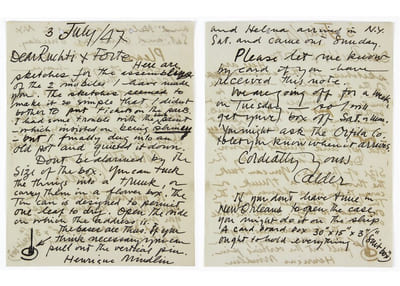 3 July/47
Dear Ruchti & Forte
Here are
sketches for the assemblage
of the 2 mobiles I have made
you. The sketches seemed to
make it so simple that I didn't
bother to put tickets on the ends
I had some trouble with the paint
which insisted on being shiney
but I finally dug into an
old pot and quieted it down.
Don't be alarmed by the
size of the box. You can tuck
the things into a truck or
carry them in a flower box. The
tin can is designed to permit
one leaf to dry. Open the side
on which the address is.
The bases are thus. If you
think necessary you can
pull out the vertical pin.
Henrique Mindlin
and Helena arriving in N.Y.
Sat. and came out Sunday.
Please let me know
by card if you leave
received this note.
We are going off for a week
on Tuesday so I will
get your box off Sat. or Mon.
You might ask the Orpha Co.
to let you know when it arrives.
Cordially yours
Calder
If you don't have time in
New Orleans to open the case,
you might do it on the ship.
A card board box 30"x15"x3½"
ought to hold everything